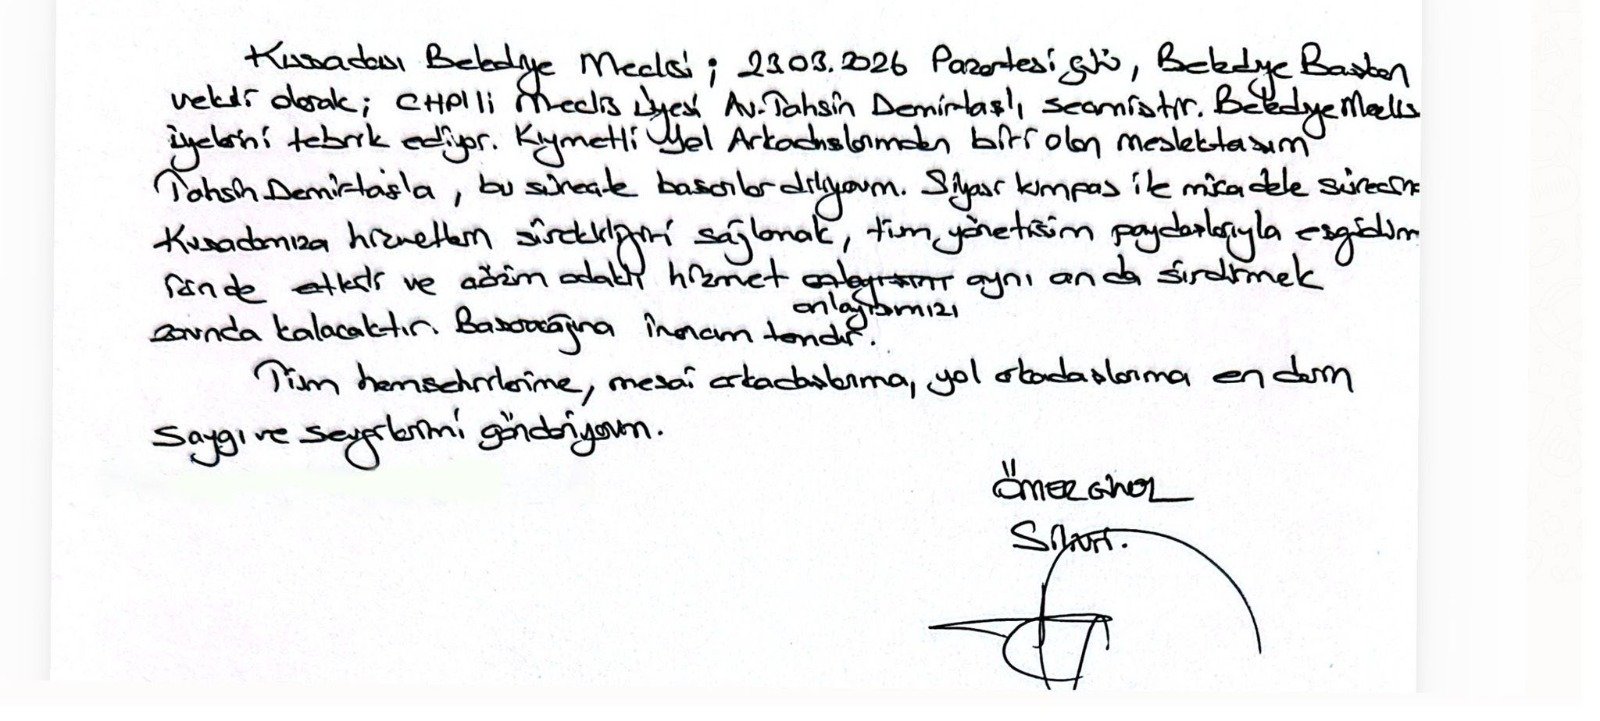 Kuşadası Belediye Meclisi; 23.03.2026 Pazartesi günü, Belediye Başkan
vekili olarak; CHP'li Meclis üyesi Av. Tahsin Demirtaşlı seçmiştir. Belediye Meclis
üyelerini tebrik ediyor. Kıymetli Yol Arkadaşlarımdan biri olan meslektaşım
Tahsin Demirtaş'la, bu süreçte başarılar diliyorum. Siyasi kumpas ile mücadele sürecini
Kuşadamıza hizmetlerin sürekliliğini sağlamak, tüm yönetişim paydaşlarıyla eşgüdüm
içinde etkili ve çözüm odaklı hizmet aynı anda sürdürmek
anlayışımızı
zorunda kalacaktır. Başaracağına inancım tamdır.
Tüm hemşehrilerime, mesai arkadaşlarıma, yol arkadaşlarıma en derin
saygı ve sevgilerimi gönderiyorum.
ÖMER GÜNEL
Silivri.